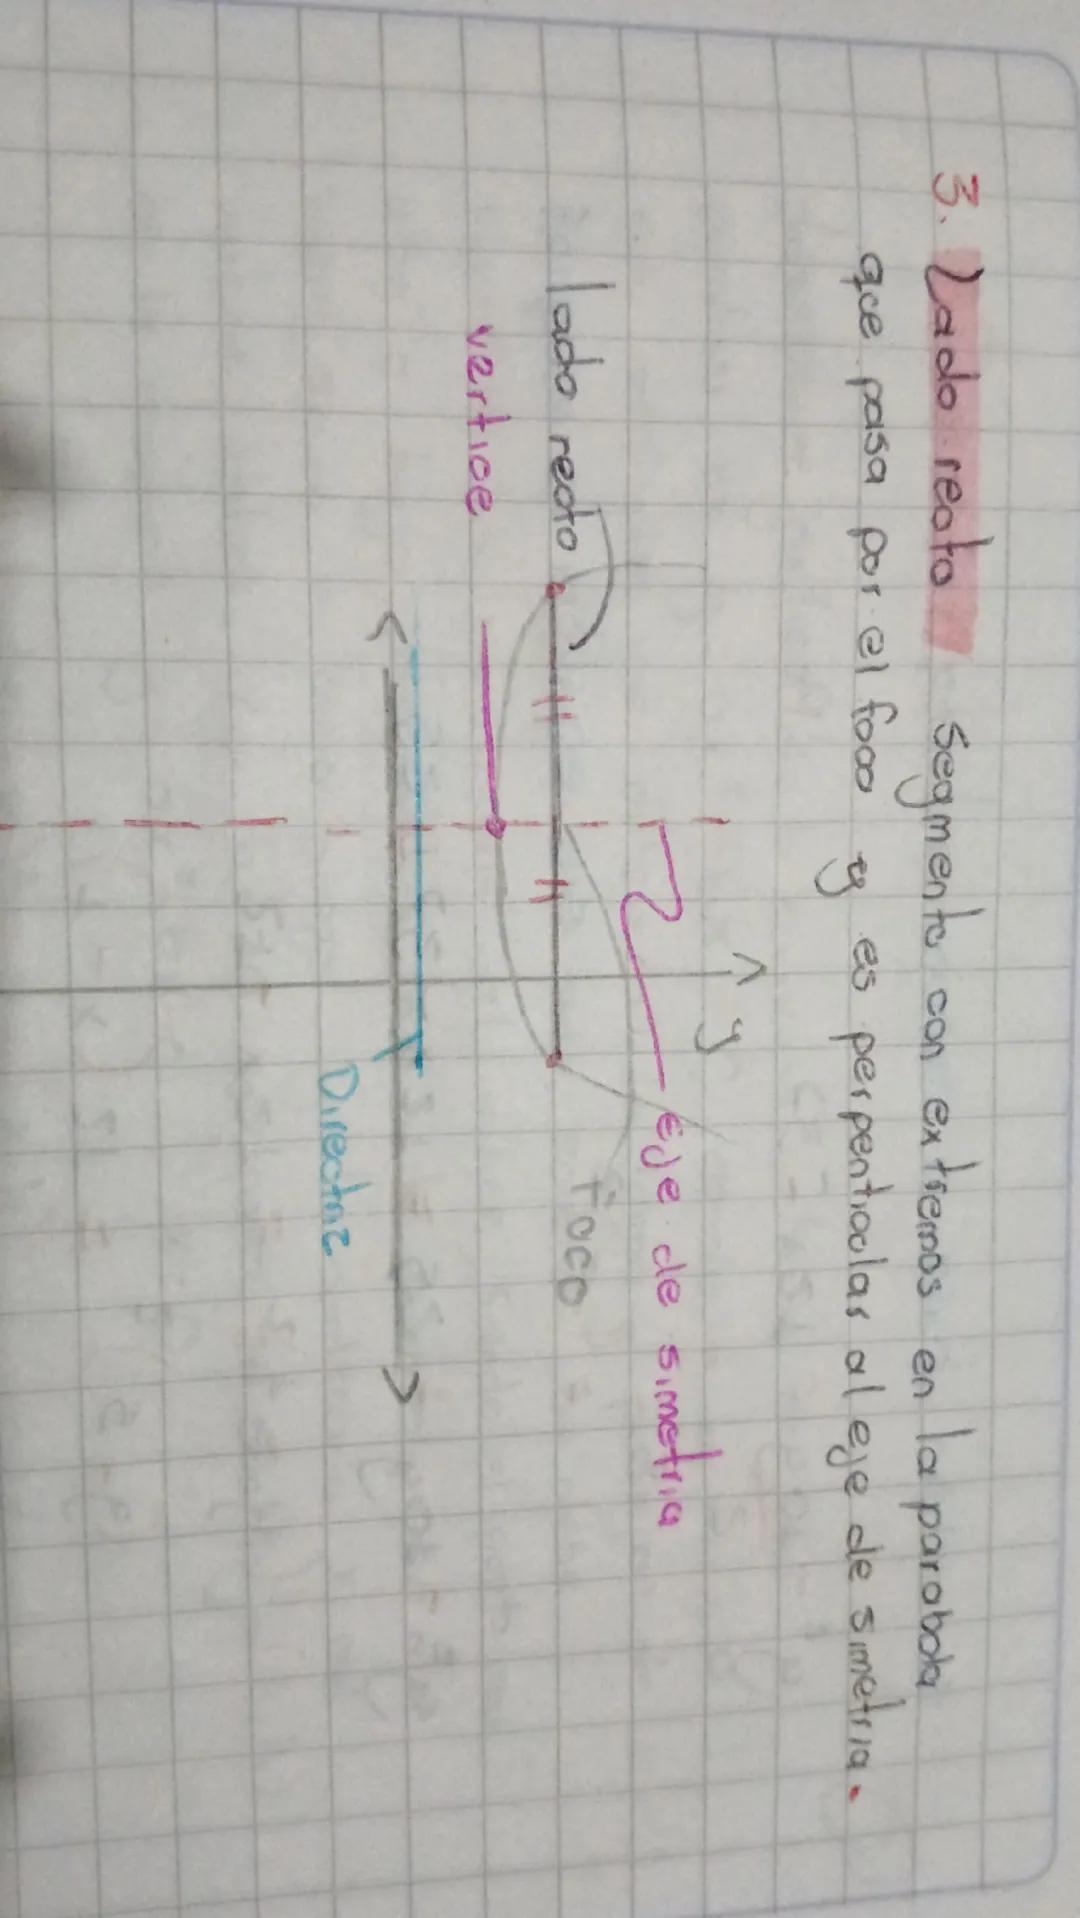 3. Lado recto Segmento con extremos en la parabola
que pasa por el foco y es perpenticolar al eje de simetria.
y
eje de simetria
lado recto
Foco
vertice
Directriz